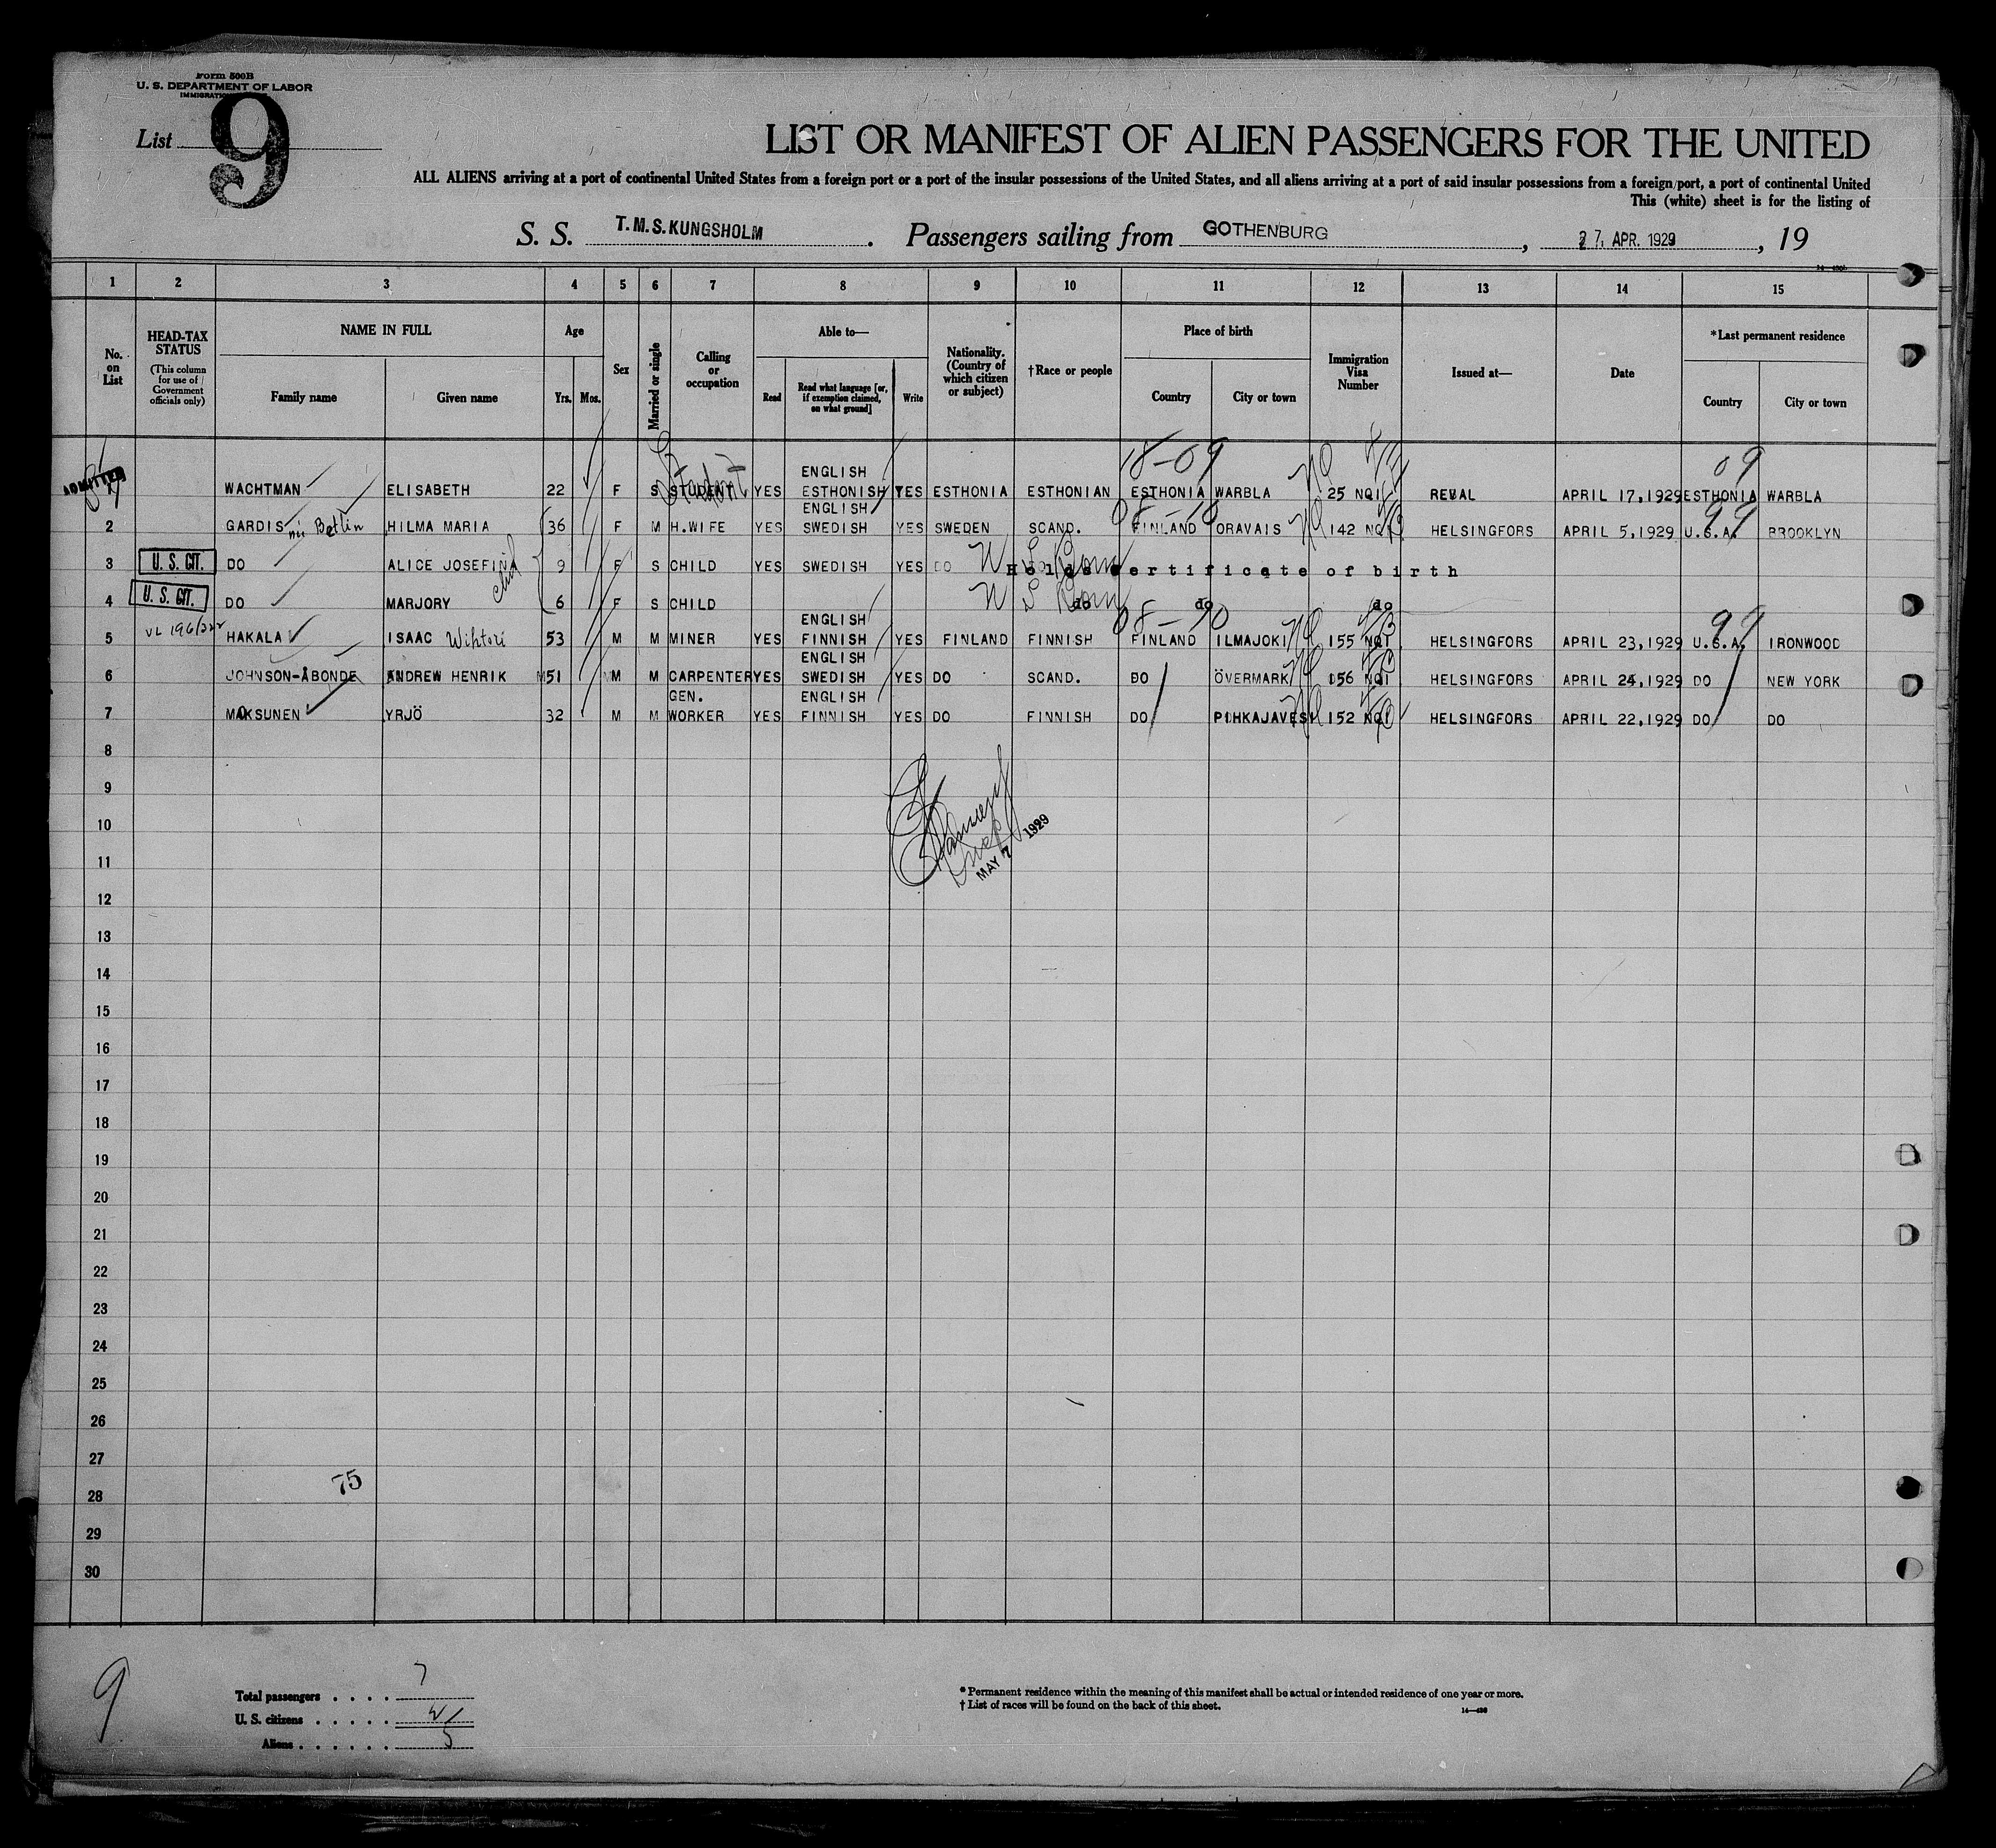 Form 500B
U. S. DEPARTMENT OF LABOR
List 9
LIST OR MANIFEST OF ALIEN PASSENGERS FOR THE UNITED
ALL ALIENS arriving at a port of continental United States from a foreign port or a port of the insular possessions of the United States, and all aliens arriving at a port of said insular possessions from a foreign port, a port of continental United
This (white) sheet is for the listing of
S. S. T.M.S.KUNGSHOLM . Passengers sailing from GOTHENBURG , 27. APR. 1929 , 19
1 2 3 4 5 6 7 8 9 10 11 12 13 14 15
No. on List
HEAD-TAX STATUS (This column for use of Government officials only)
NAME IN FULL Family name Given name
Age Yrs. Mos.
Sex
Married or single
Calling or occupation
Able to— Read Read what language [or, if exemption claimed, on what ground] Write
Nationality. (Country of which citizen or subject)
†Race or people
Place of birth Country City or town
Immigration Visa Number
Issued at—
Date
*Last permanent residence Country City or town
18-09 09
ADMITTED WACHTMAN ELISABETH 22 F S STUDENT Student YES ENGLISH ESTHONISH YES ESTHONIA ESTHONIAN ESTHONIA WARBLA 25 NQI REVAL APRIL 17,1929 ESTHONIA WARBLA
99
2 GARDIS HILMA MARIA 36 F M H.WIFE YES ENGLISH SWEDISH YES SWEDEN SCAND. FINLAND ORAVAIS 142 HELSINGFORS APRIL 5,1929 U.S.A. BROOKLYN
3 U. S. CIT. DO ALICE JOSEFINA 9 F S CHILD YES SWEDISH YES DO Holds certificate of birth
4 U. S. CIT. DO MARJORY 6 F S CHILD do do do
08-90 99
5 HAKALA ISAAC Wihtori 53 M M MINER YES ENGLISH FINNISH YES FINLAND FINNISH FINLAND ILMAJOKI 155 NQI HELSINGFORS APRIL 23,1929 U.S.A. IRONWOOD
6 JOHNSON-ÅBONDE ANDREW HENRIK 51 M M CARPENTER YES ENGLISH SWEDISH YES DO SCAND. DO ÖVERMARK 156 NQI HELSINGFORS APRIL 24,1929 DO NEW YORK
7 MAKSUNEN YRJÖ 32 M M GEN. WORKER YES ENGLISH FINNISH YES DO FINNISH DO PIHKAJAVESI 152 NQI HELSINGFORS APRIL 22,1929 DO DO
8
9
10
MAY 7 1929
11
12
13
14
15
16
17
18
19
20
21
22
23
24
25
26
27
75
28
29
30
9
Total passengers . . . . 7
U. S. citizens . . . . .
Aliens . . . . . . 5
* Permanent residence within the meaning of this manifest shall be actual or intended residence of one year or more.
† List of races will be found on the back of this sheet.